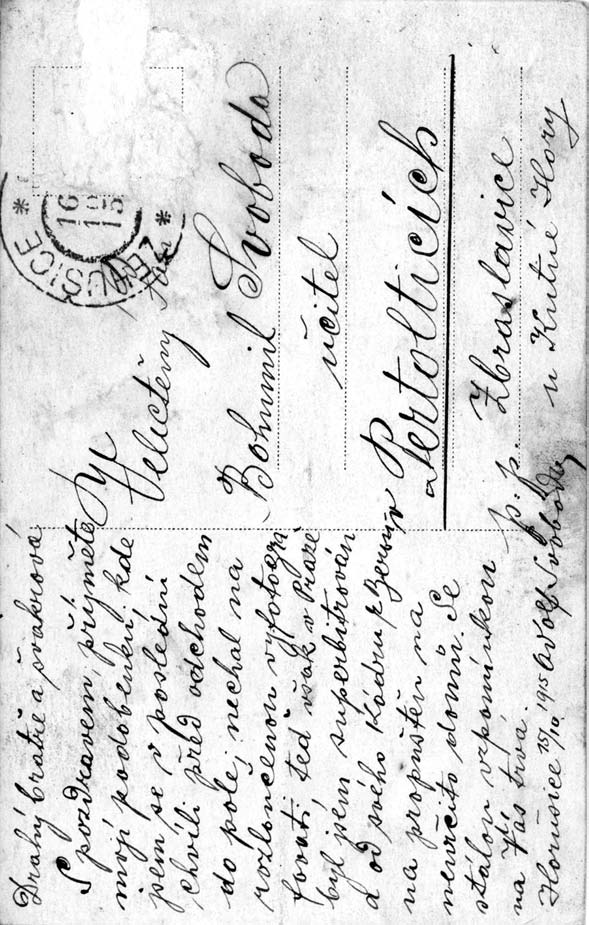 Drahý bratře a švakrová
S pozdravem přijměte
mojí podobenku kde
jsem se v poslední
chvíli před odchodem
do pole, nechal na
rozloučenou vyfotogra
fovati, teď však v Praze
byl jsem superbitrován
a od svého Kádru z
na propuštěn na
neurčito domů. Se
stálou vzpomínkou
na Vás trvá
Hořušice 15/10. 1915 Adolf Svoboda
Velictěný Pán
Bohumil Svoboda
učitel
v Pertolticích
p. p. Zbraslavice
u Kutné Hory
ŽEHUŠICE
16
15